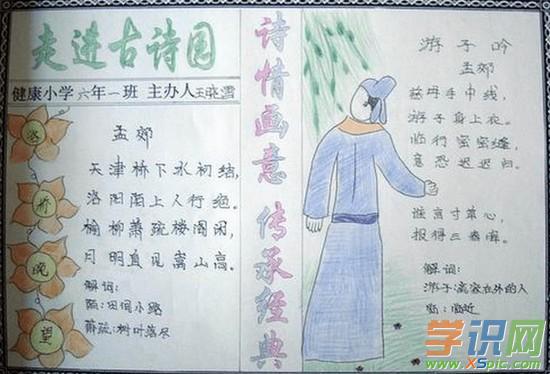 走进古诗园
健康小学六年一班 主办人王晓雪
洛
桥
晚
望
孟郊
天津桥下水初结，
洛阳陌上人行绝。
榆柳萧疏楼阁闲，
月明直见嵩山高。
解词：
陌：田间小路
萧疏：树叶落尽
诗情画意 传承经典
游子吟
孟郊
慈母手中线，
游子身上衣。
临行密密缝，
意恐迟迟归。
谁言寸草心，
报得三春晖。
解词：
游子：离家在外的人
临：临近
学识网
www.XSpic.com